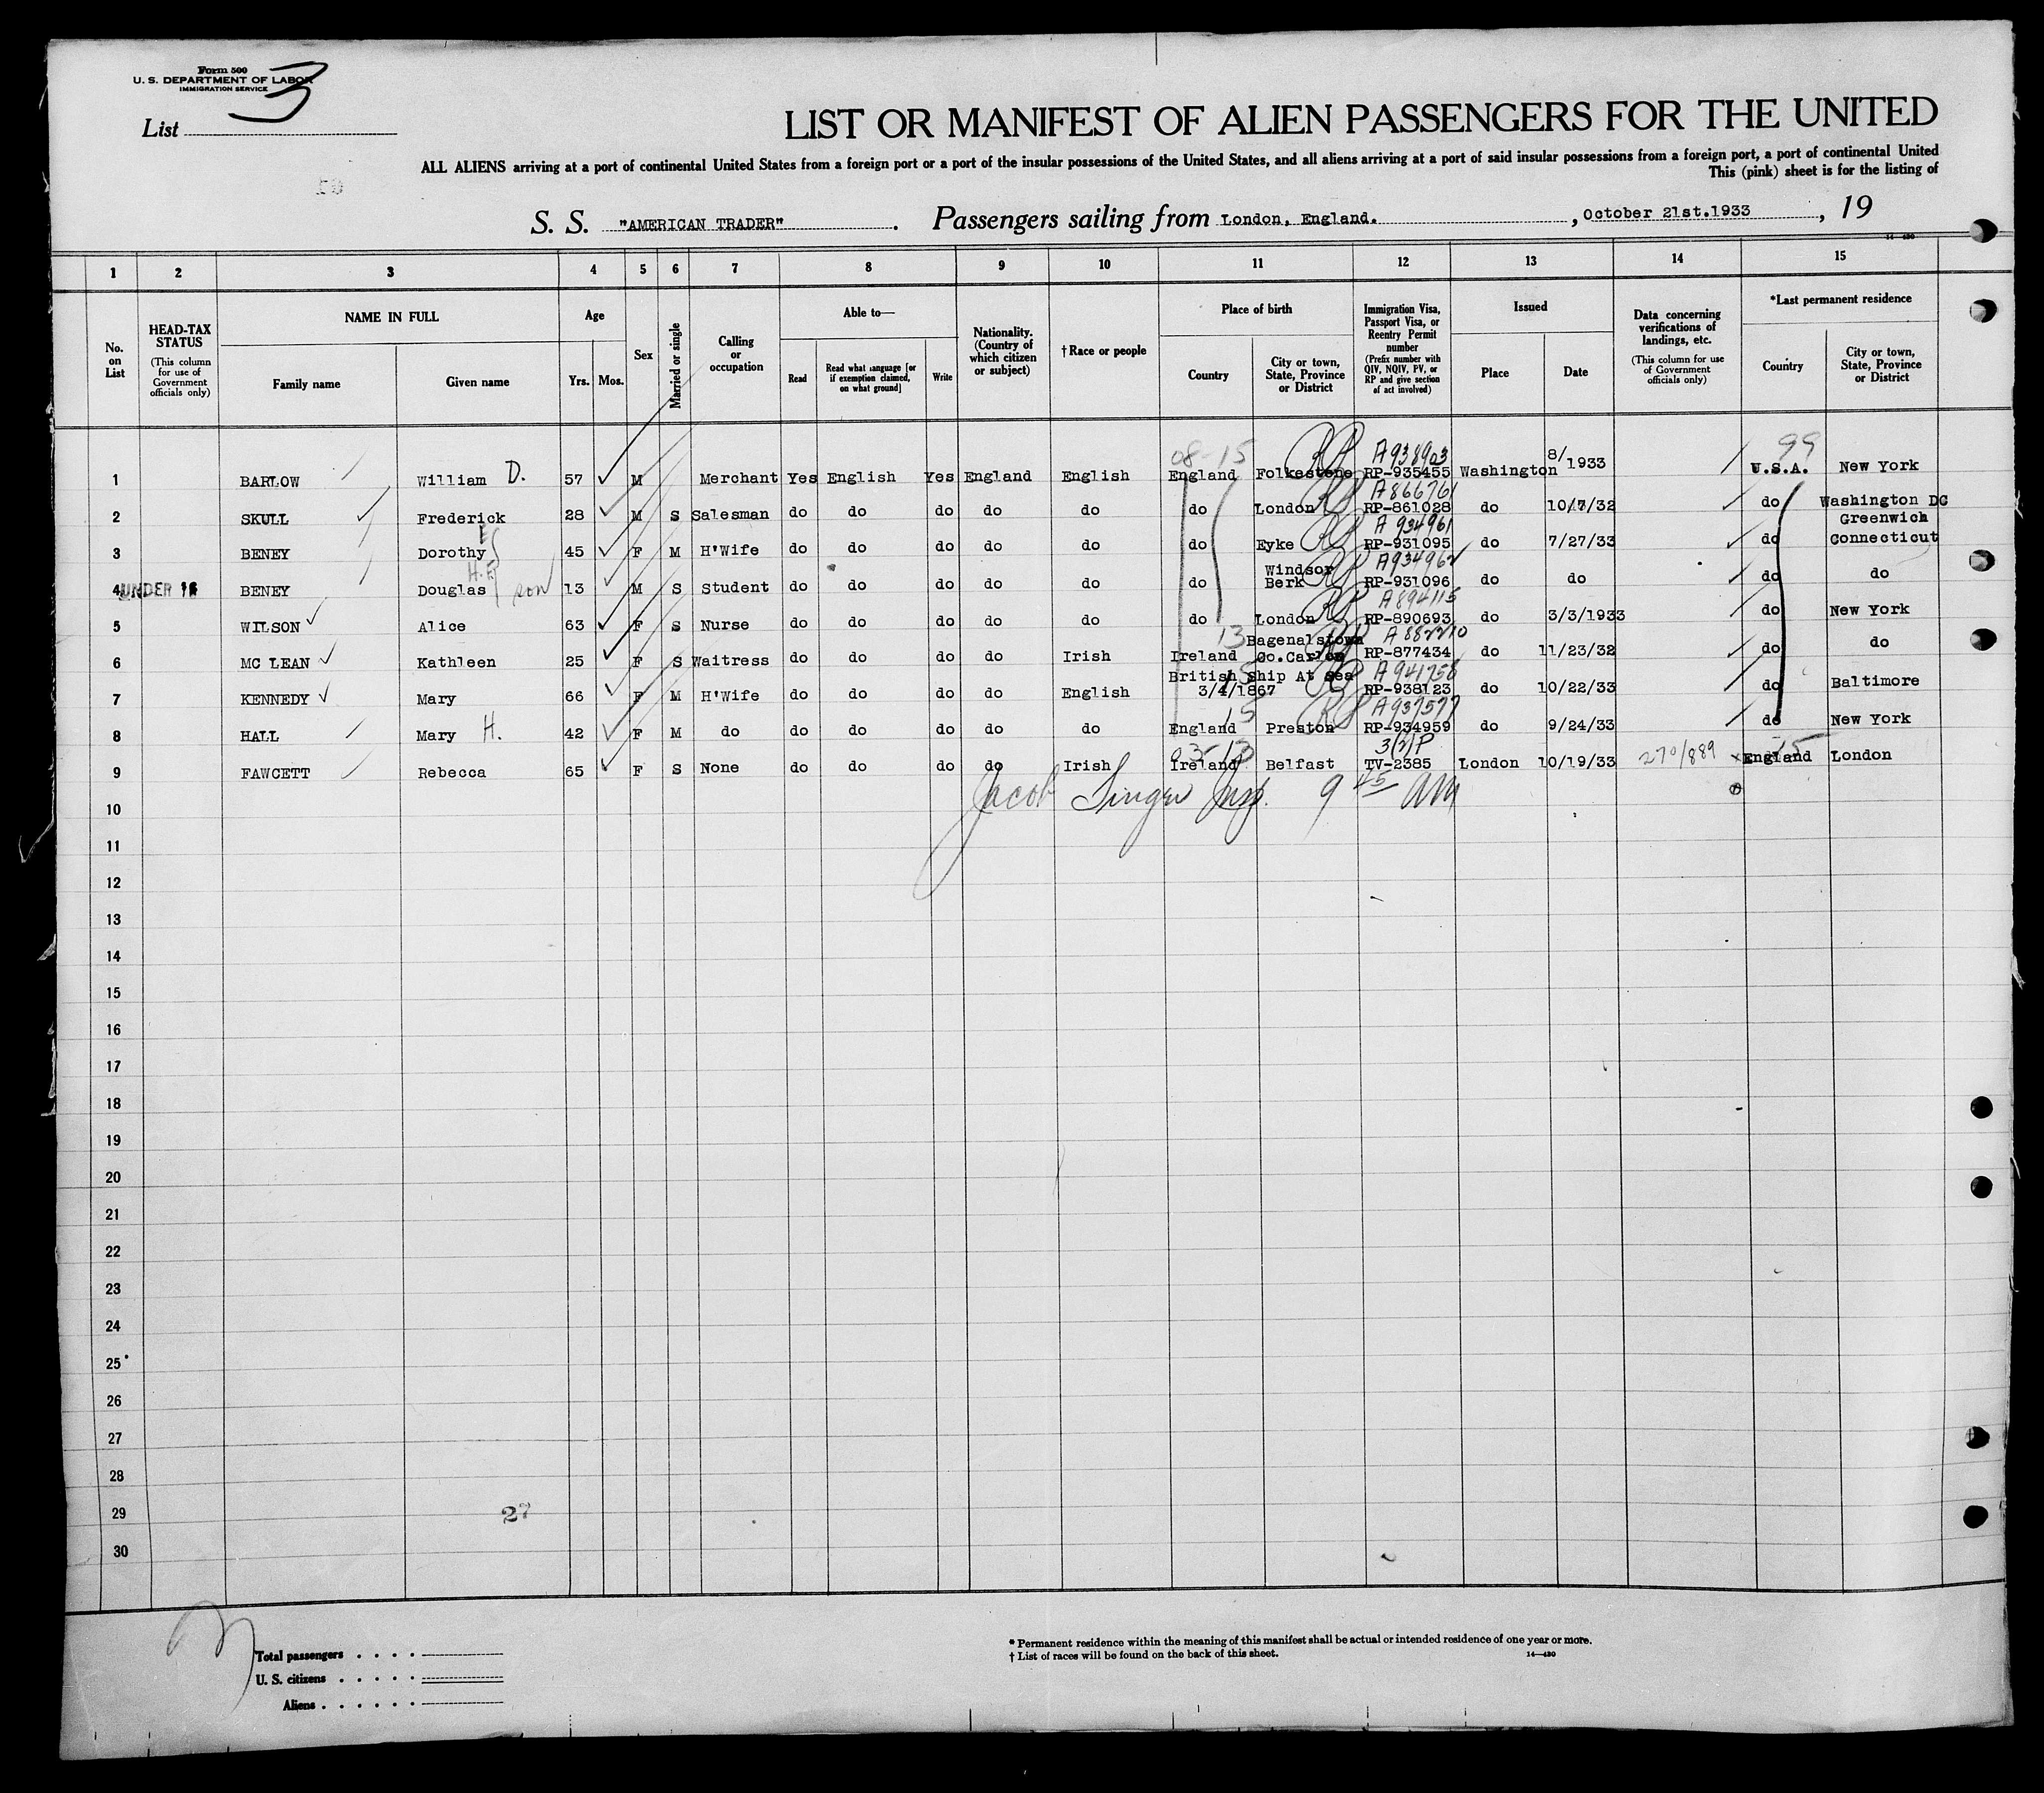 Form 500
U. S. DEPARTMENT OF LABOR
IMMIGRATION SERVICE
List 3
LIST OR MANIFEST OF ALIEN PASSENGERS FOR THE UNITED
ALL ALIENS arriving at a port of continental United States from a foreign port or a port of the insular possessions of the United States, and all aliens arriving at a port of said insular possessions from a foreign port, a port of continental United
This (pink) sheet is for the listing of
S. S. "AMERICAN TRADER" . Passengers sailing from London, England. , October 21st.1933 , 19
14—480
1 2 3 4 5 6 7 8 9 10 11 12 13 14 15
No. on List
HEAD-TAX STATUS (This column for use of Government officials only)
NAME IN FULL Family name Given name
Age Yrs. Mos.
Sex
Married or single
Calling or occupation
Able to— Read Read what language [or if exemption claimed, on what ground] Write
Nationality. (Country of which citizen or subject)
† Race or people
Place of birth Country City or town, State, Province or District
Immigration Visa, Passport Visa, or Reentry Permit number (Prefix number with QIV, NQIV, PV, or RP and give section of act involved)
Issued Place Date
Data concerning verifications of landings, etc. (This column for use of Government officials only)
*Last permanent residence Country City or town, State, Province or District
08-15 RP A938903 99
1 BARLOW William D. 57 M Merchant Yes English Yes England English England Folkestone RP-935455 Washington 8/ 1933 U.S.A. New York
RP A866761
2 SKULL Frederick 28 M S Salesman do do do do do do London RP-861028 do 10/7/32 do Washington DC
RP A934961 Greenwich
3 BENEY Dorothy E 45 F M H'Wife do do do do do do Eyke RP-931095 do 7/27/33 do Connecticut
RP A934962
4 UNDER 16 BENEY Douglas H.E. son 13 M S Student do do do do do do Windsor Berk RP-931096 do do do do
RP A894115
5 WILSON Alice 63 F S Nurse do do do do do do London RP-890693 do 3/3/1933 do New York
13 RP A882210
6 MC LEAN Kathleen 25 F S Waitress do do do do Irish Ireland Bagenalstown Co.Carlow RP-877434 do 11/23/32 do do
15 RP A941758
7 KENNEDY Mary 66 F M H'Wife do do do do English British Ship At Sea 3/4/1867 RP-938123 do 10/22/33 do Baltimore
15 RP A937577
8 HALL Mary H. 42 F M do do do do do do England Preston RP-934959 do 9/24/33 do New York
03-13 3(2)P
9 FAWCETT Rebecca 65 F S None do do do do Irish Ireland Belfast TV-2385 London 10/19/33 270/889 x England 15 London
10 Jacob Singer Insp. 9 45 AM
11
12
13
14
15
16
17
18
19
20
21
22
23
24
25
26
27
28
29 27
30
Total passengers
U. S. citizens
Aliens
* Permanent residence within the meaning of this manifest shall be actual or intended residence of one year or more.
† List of races will be found on the back of this sheet.
14—480